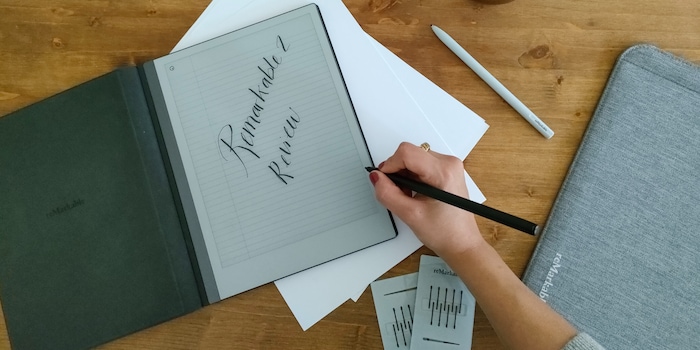 Remarkable 2
Review
reMarkable
reMarkable
reMarkable